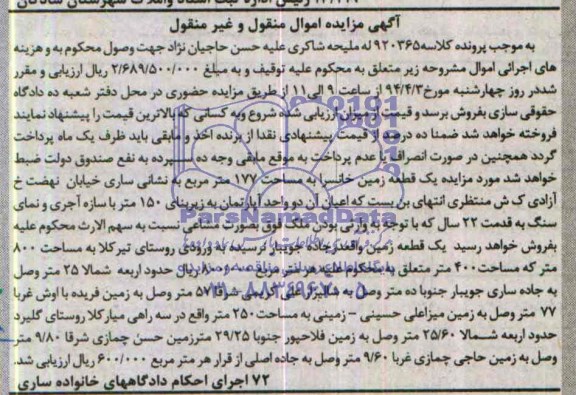 آگهی مزایده اموال منقول و غیر منقول
به موجب پرونده کلاسه۹۲۰۳۶۵ له ملیحه شاکری علیه حسن حاجیان نژاد جهت وصول محکوم به و هزینه
های اجرائی اموال مشروحه زیر متعلق به محکوم علیه توقیف و به مبلغ ۲/۶۸۹/۵۰۰/۰۰۰ ریال ارزیابی و مقرر
شددر روز چهارشنبه مورخ۹۴/۴/۳ از ساعت ۹ الی۱۱ از طریق مزایده حضوری در محل دفتر شعبه ده دادگاه
حقوقی ساری بفروش برسد و قیمت از میزان ارزیابی شده شروع وبه کسانی که بالاترین قیمت را پیشنهاد نمایند
فروخته خواهد شد ضمنا ده درصد از قیمت پیشنهادی نقدا از برنده اخذ و مابقی باید ظرف یک ماه پرداخت
گردد همچنین در صورت انصراف یا عدم پرداخت به موقع مابقی وجه ده سپرده به نفع صندوق دولت ضبط
خواهد شد. مورد مزایده یک قطعه زمین خانسرا به مساحت ۱۷۷ متر مربع به نشانی ساری خیابان نهضت خ
آزادی ک ش منتظری انتهای بن بست که اعیان آن دو واحد آپارتمان به زیربنای ۱۵۰ متر با سازه آجری و نمای
سنگ به قدمت ۲۲ سال که با توجه به وراثی بودن ملک فوق بصورت مشاعی نسبت به سهم الارث محکوم علیه
بفروش خواهد رسید یک قطعه زمین واقعدرجاده جویبار نرسیده به ورودی روستای تیرکلا به مساحت ۸۰۰
متر که مساحت۴۰۰ متر متعلق به محکوم علیه هر متر مربع ریال حدود اربعه شمالا ۲۵ متر وصل
به جاده ساری جویبار جنوبا ده متر وصل به شالیزار علی کریمی شرقا ۵۷ متر وصل به زمین فریده با اوش غربا
۷۷ متر وصل به زمین میزاعلی حسینی - زمینی به مساحت ۲۵۰ متر واقع در سه راهی میارکلا روستای گلیرد
حدود اربعه شمالا ۲۵/۶۰ متر وصل به زمین فلاحپور جنوبا ۲۹/۲۵ مترزمین حسن چمازی شرقا ۹/۸۰ متر
وصل به زمین حاجی چمازی غربا ۹/۶۰ متر وصل به جاده اصلی از قرار هر متر مربع ۶۰۰/۰۰۰ ریال ارزیابی شد.
۷۲ اجرای احکام دادگاههای خانواده ساری
ParsNamadData